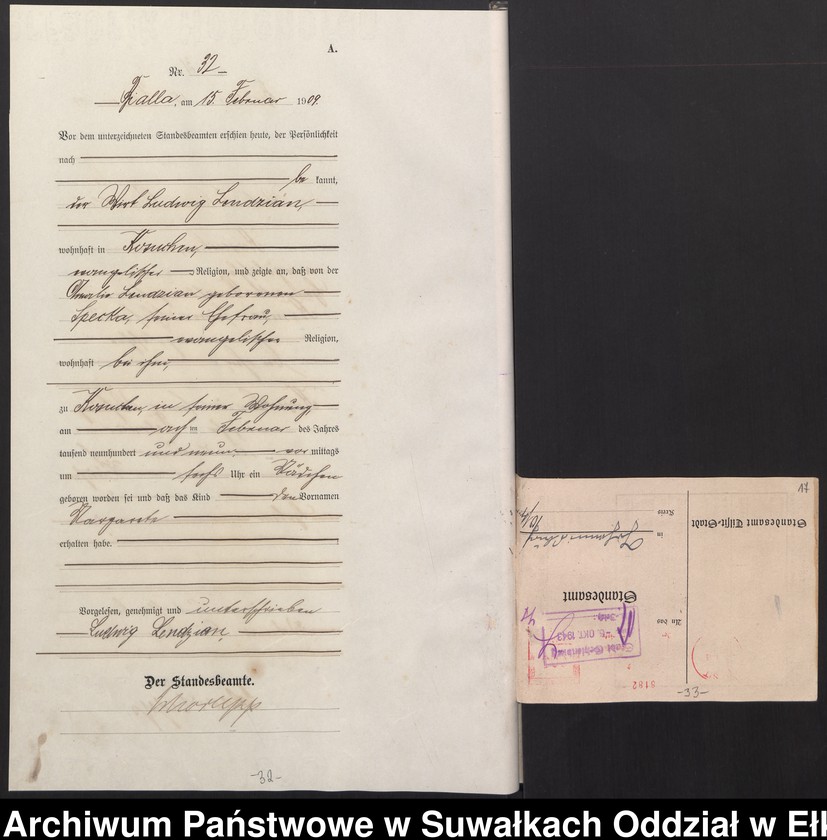 A.
Nr. 32
Bialla, am 15. Februar 1909.
Vor dem unterzeichneten Standesbeamten erschien heute, der Persönlichkeit
nach
be kannt,
der Wirt Ludwig Lendzian,
wohnhaft in Kosuchen,
evangelischer Religion, und zeigte an, daß von der
Amalie Lendzian geborenen
Specka, seiner Ehefrau,
evangelischer Religion,
wohnhaft bei ihm,
zu Kosuchen, in seiner Wohnung
am acht ten Februar des Jahres
tausend neunhundert und neun vor mittags
um sechs Uhr ein Mädchen
geboren worden sei und daß das Kind den Vornamen
Margarete
erhalten habe.
Vorgelesen, genehmigt und unterschrieben
Ludwig Lendzian.
Der Standesbeamte.
-32-
17
Standesamt Tilsit-Stadt
An das
Standesamt
in Johannisburg
Kreis
OKT. 1943
5182
-33-
Archiwum Państwowe w Suwałkach Oddział w Eł